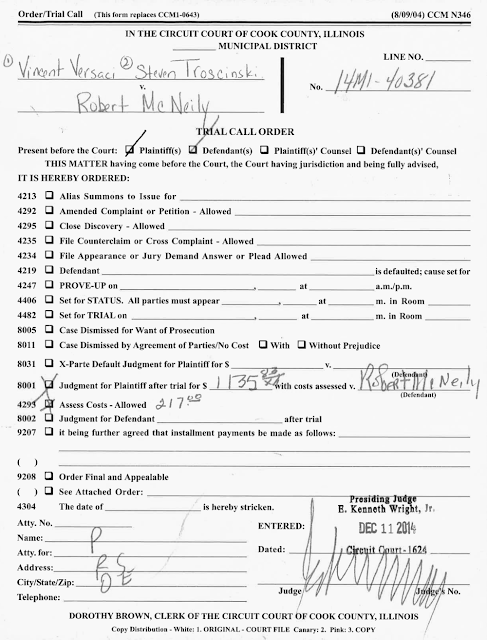 Order/Trial Call (This form replaces CCM1-0643) (8/09/04) CCM N346
IN THE CIRCUIT COURT OF COOK COUNTY, ILLINOIS
MUNICIPAL DISTRICT
① Vincent Versaci ② Steven Troscinski
LINE NO.
v.
No. 14M1-40381
Robert McNeily
TRIAL CALL ORDER
Present before the Court: Plaintiff(s) Defendant(s) Plaintiff(s)' Counsel Defendant(s)' Counsel
THIS MATTER having come before the Court, the Court having jurisdiction and being fully advised,
IT IS HEREBY ORDERED:
4213 Alias Summons to Issue for
4292 Amended Complaint or Petition - Allowed
4295 Close Discovery - Allowed
4235 File Counterclaim or Cross Complaint - Allowed
4234 File Appearance or Jury Demand Answer or Plead Allowed
4219 Defendant is defaulted; cause set for
4247 PROVE-UP on , at a.m./p.m.
4406 Set for STATUS. All parties must appear , at m. in Room
4482 Set for TRIAL on , at m. in Room
8005 Case Dismissed for Want of Prosecution
8011 Case Dismissed by Agreement of Parties/No Cost With Without Prejudice
8031 X-Parte Default Judgment for Plaintiff for $ v.
(Defendant)
8001 Judgment for Plaintiff after trial for $ 1135 with costs assessed v. Robert McNeily
(Defendant)
4293 Assess Costs - Allowed 217.00
8002 Judgment for Defendant after trial
9207 it being further agreed that installment payments be made as follows:
( )
9208 Order Final and Appealable
( ) See Attached Order:
4304 The date of is hereby stricken.
Presiding Judge
E. Kenneth Wright, Jr.
Atty. No.
ENTERED: DEC 11 2014
Name: P
Atty. for:
Dated: Circuit Court-1624
Address:
City/State/Zip:
Telephone:
Judge Judge's No.
DOROTHY BROWN, CLERK OF THE CIRCUIT COURT OF COOK COUNTY, ILLINOIS
Copy Distribution - White: 1. ORIGINAL - COURT FILE Canary: 2. Pink: 3. COPY